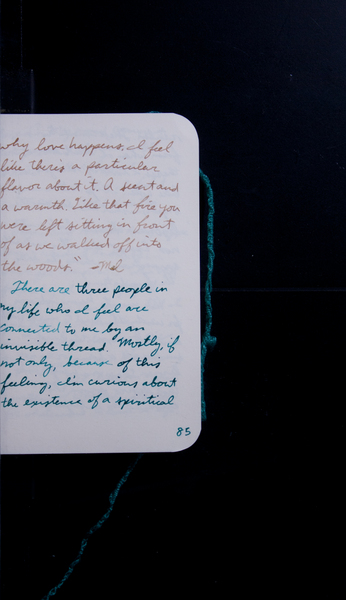 why love happens. I feel
like there's a particular
flavor about it. A scent and
a warmth. Like that fire you
were left sitting in front
of as we walked off into
the woods." -Md
There are three people in
my life who I feel are
connected to me by an
invisible thread. Mostly, if
not only, because of this
feeling, I'm curious about
the existence of a spiritical
85